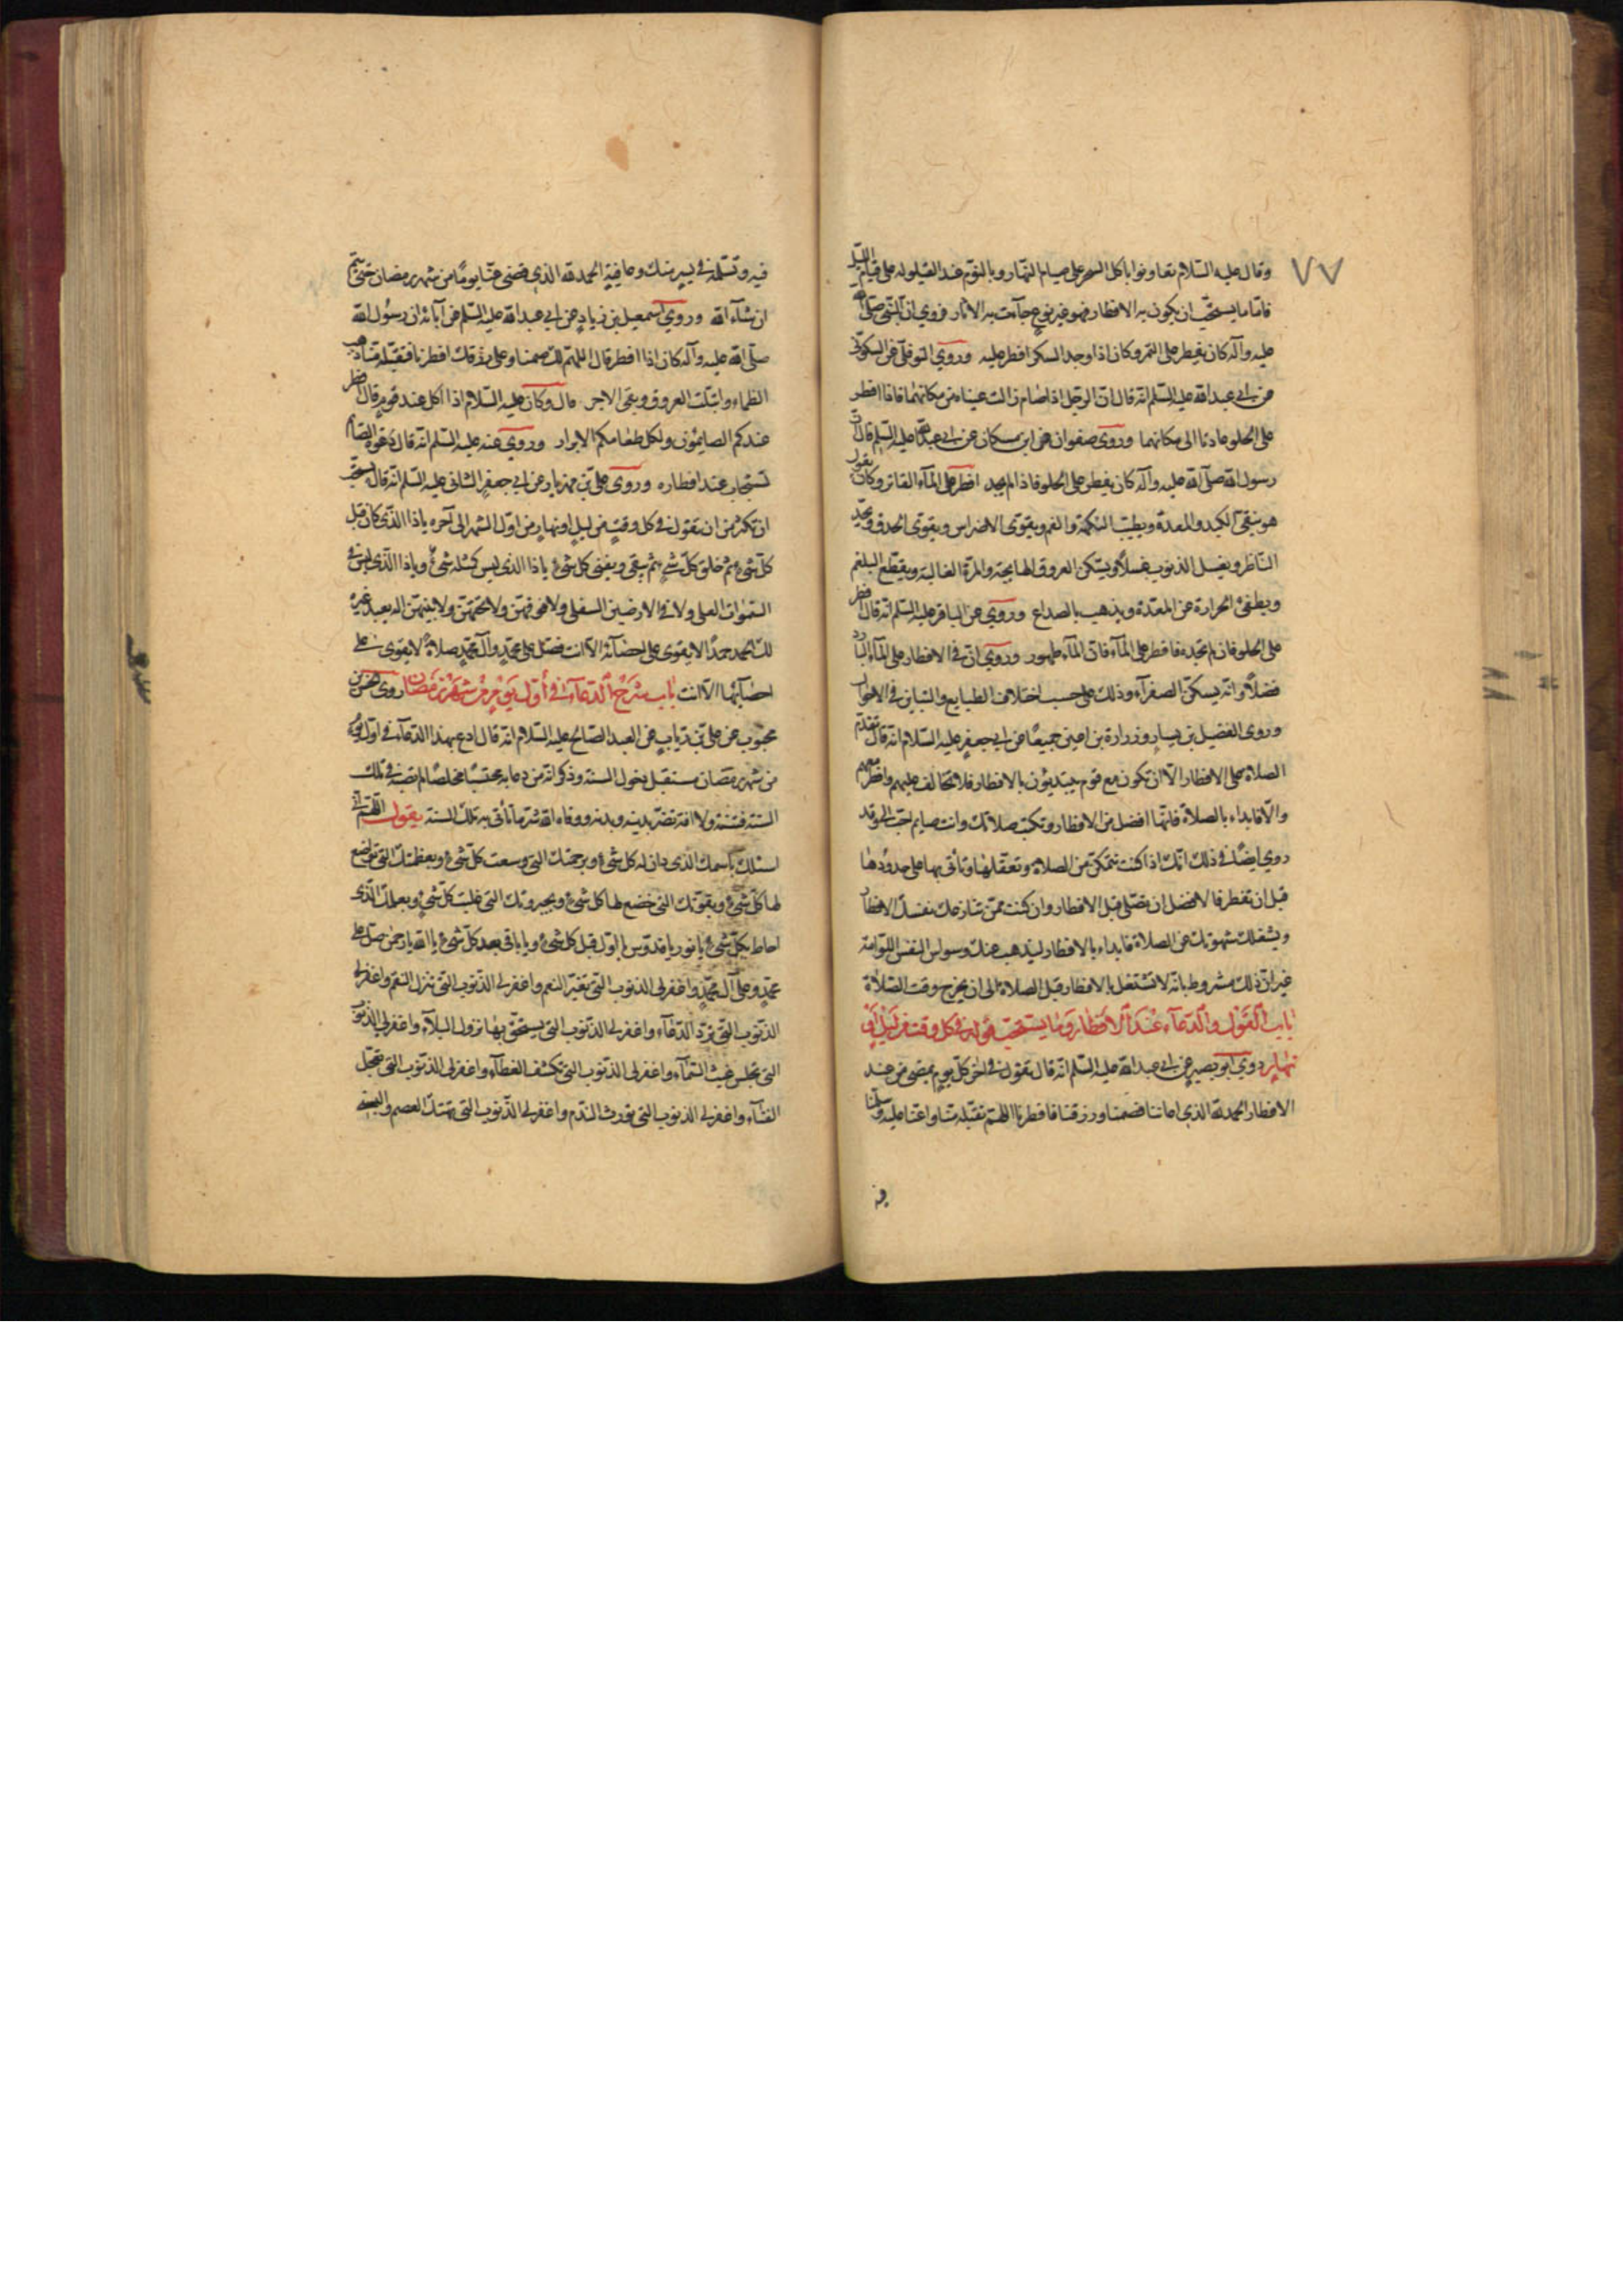 ٧٧
وقال عليه السّلام تعاونوا باكل السحر على صيام النهار وبالنوم عند القيلوله على قيام الليل
فامّا ما يستحبّ ان يكون به الافطار فهو غير نوع جآءت به الاثار فروي انّ النبّى صلّى الله
عليه وآله كان يفطر على التمر وكان اذا وجد السكر افطر عليه وروي النوفلّى عن السكونّى
عن ابى عبد الله عليه السّلم انّه قال انّ الرجل اذا صام زالت عيناه من مكانهما فاذا افطر
على الحلو عادتا الى مكانهما وروى صفوان عن ابن مسكان عن ابى عبد الله عليه السّلم قال انّ
رسول الله صلّى الله عليه وآله كان يفطر على الحلو فاذا لم يجد افطر على المآء الفاتر وكان يقول
هو ينقى الكبد والمعدة ويطيّب النكهة والفم ويقوّى الاضراس ويقوّى الحدق ويحدّ
النّاظر ويغسل الذنوب غسلًا ويسكّن العروق الهايجة والمرّة الغالبة ويقطع البلغم
ويطفئ الحرارة عن المعدة ويذهب بالصداع وروي عن الباقر عليه السّلم انّه قال افطر
على الحلو فان لم تجده فافطر على المآء فانّ المآء طهور وروي انّ فى الافطار على المآء البارد
فضلًا وانّه يسكّن الصفرآء وذلك على حسب اختلاف الطبايع والتباين فى الاحوال
وروى الفضيل بن يسار وزرارة بن اعين جميعًا عن ابى جعفر عليه السّلام انّه قال تقدّم
الصلاة على الافطار الّا ان تكون مع قوم يبتدئون بالافطار فلا تخالف عليهم وافطر معهم
والّا فابداء بالصلاة فانّها افضل من الافطار وتكتب صلاتك وانت صايم احبّ الىّ وقد
روي ايضًا فى ذلك انّك اذا كنت تتمكّن من الصلاة وتعقلها وتأتى بها على حدودها
قبل ان تفطر فالافضل ان تصّلى قبل الافطار وان كنت ممّن تنازعك نفسك الافطار
ويشغلك شهوتك عن الصلاة فابداء بالافطار ليذهب عنك وسواس النفس اللوّامة
غير انّ ذلك مشروط بانّه لا تشتغل بالافطار قبل الصلاة الى ان يخرج وقت الصّلاة
باب القول والدعآء عند الافطار وما يستحبّ قوله فى كل وقت من ليل او
نهار روي ابو بصير عن ابى عبد الله عليه السّلم انّه قال تقول فى اخر كلّ يوم يمضى من عند
الافطار الحمد لله الذى اعاننا فصمنا ورزقنا فافطرنا اللهمّ تقبّله منّا واعنّا عليه وسلّمنا
فيه
فيه وتسلّمه فى يسر منك وعافيةٍ الحمد لله الذى قضى عنّا يومًا من شهر رمضان حتى يتم
ان شآء الله وروى اسمعيل بن زيادٍ عن ابى عبد الله عليه السّلم عن آبائه ان رسُول الله
صلّى الله عليه وآله كان اذا افطر قال اللهمّ لك صمنا وعلى رزقك افطرنا فتقبّله منّا ذهب
الظماء وابتلّت العروق وبقى الاجر قال وكان عليه السّلام اذا اكل عند قومٍ قال افطر
عندكم الصايمون واكل طعامكم الابرار وروي عنه عليه السّلم انّه قال دعوة الصّايم
تستجاب عند افطاره وروى علىّ بن مهزيار عن ابى جعفر الثانى عليه السّلم انّه قال يستحبّ
ان تكثر من ان تقول فى كل وقتٍ من ليلٍ او نهارٍ من اوّل الشهر الى آخره ياذا الذّى كان قبل
كلّ شىء ثم خلق كلّ شىء ثم يبقى ويفنى كلّ شىء ياذا الذى ليس كمثله شىءٌ وياذا الّذى ليس فى
السّموات العلى ولا فى الارضين السفلى ولا فوقهنّ ولا تحتهنّ ولا بينهنّ اله يعبد غيره
لك الحمد حمدًا لا يقوى على احصآئه الّا انت فصّل على محمّدٍ وآل محمّدٍ صلاةً لا يقوى على
احصآئها الّا انت باب شرح الدعآء فى أوّل يوم من شهر رمضان روى الحسن بن
محبوب عن علىّ بن رئابٍ عن العبد الصّالح عليه السّلام انّه قال ادع بهذا الدّعآء فى اوّل يوم
من شهر رمضان مستقبل دخول السنة وذكر انّه من دعا به محتسبًا مخلصًا لم تصبه فى تلك
السّنة فتنة ولا افة تضرّ بدينه وبدنه ووقاه الله شرّ ما يأتى به تلك السنة يقول اللّهمّ انّى
اسئلك باسمك الّذى دان له كلّ شىءٍ وبرحمتك التى وسعت كلّ شىءٍ وبعظمتك التى تواضع
لها كلّ شىءٍ وبقوّتك التى خضع لها كل شىءٍ وبجبروتك التى غلبت كلّ شىءٍ وبعلمك الّذى
احاط بكلّ شىءٍ يا نور يا قدّوس يا اوّل قبل كلّ شىءٍ ويا باقى بعد كلّ شىءٍ يا الله يا رحمن صلّ على
محمّدٍ وعلى آل محمّدٍ واغفر لى الذنوب التى تغيّر النعم واغفر لى الذّنوب التى تنزل النقم واغفر لى
الذّنوب التى تردّ الدّعآء واغفر لى الذّنوب التى يستحقّ بها نزول البلآء واغفر لى الذّنوب
التى تحبس غيث السّمآء واغفر لى الذّنوب التى تكشف الغطآء واغفر لى الذّنوب التى تعجّل
الفنآء واغفر لى الذنوب التى تورث النّدم واغفر لى الذّنوب التى تهتك العصم والبسنى